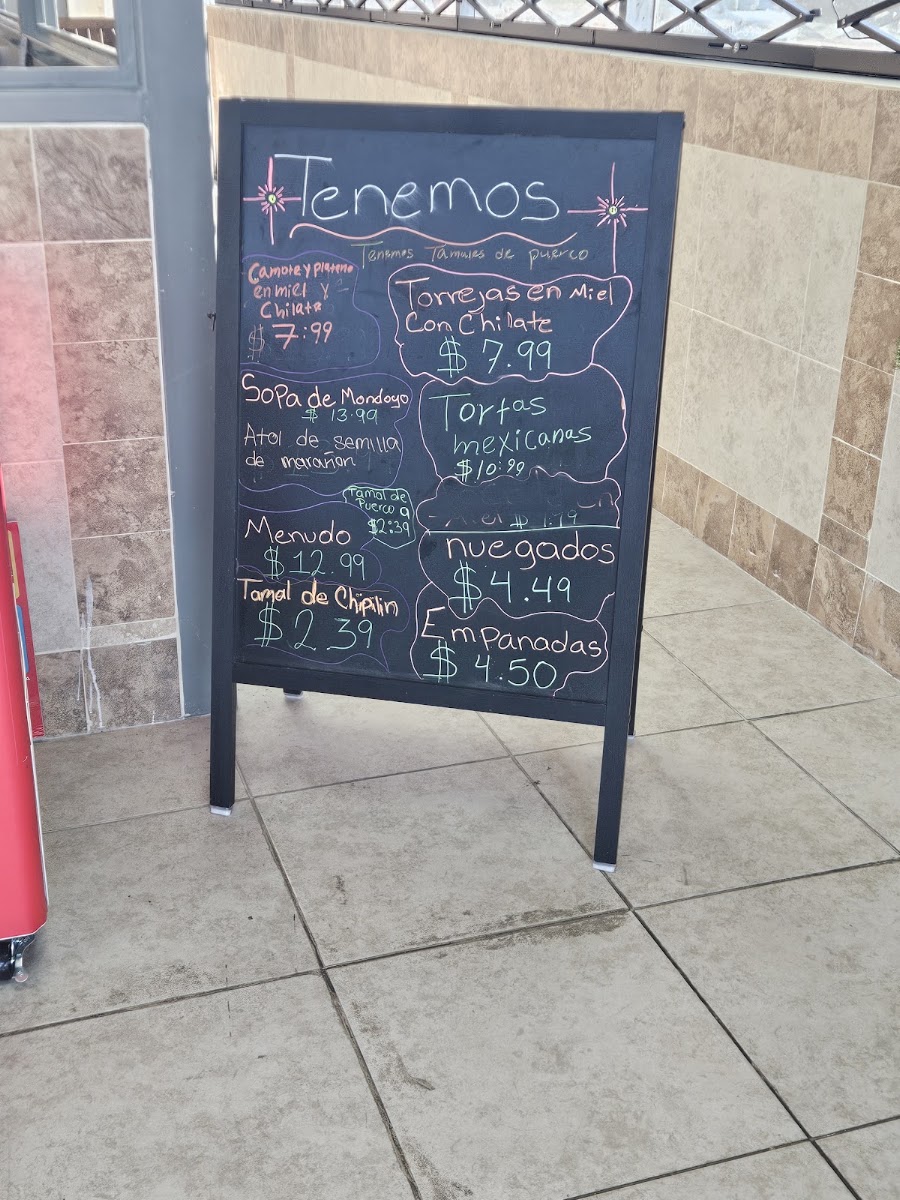 Tenemos
Tenemos Tamales de puerco
Camote y platano
en miel y
Chilate
$ 7:99
Sopa de Mondogo
$ 13.99
Atol de semilla
de marañon
Tamal de
Puerco a
$2:39
Menudo
$12.99
Tamal de Chipilin
$ 2 39
Torrejas en Miel
Con Chilate
$ 7.99
Tortas
mexicanas
$10:99
nuegados
$4.49
Empanadas
$ 4.50